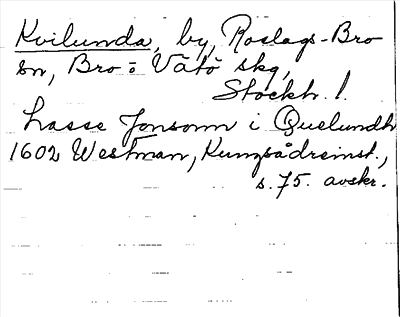 Kvilunda, by, Roslags-Bro
sn, Bro o Vätö skg,
Stockh. l.
Lasse Jonsonn i Quelundh
1602 Westman, Kungsådreinst.,
s. 75. avskr.